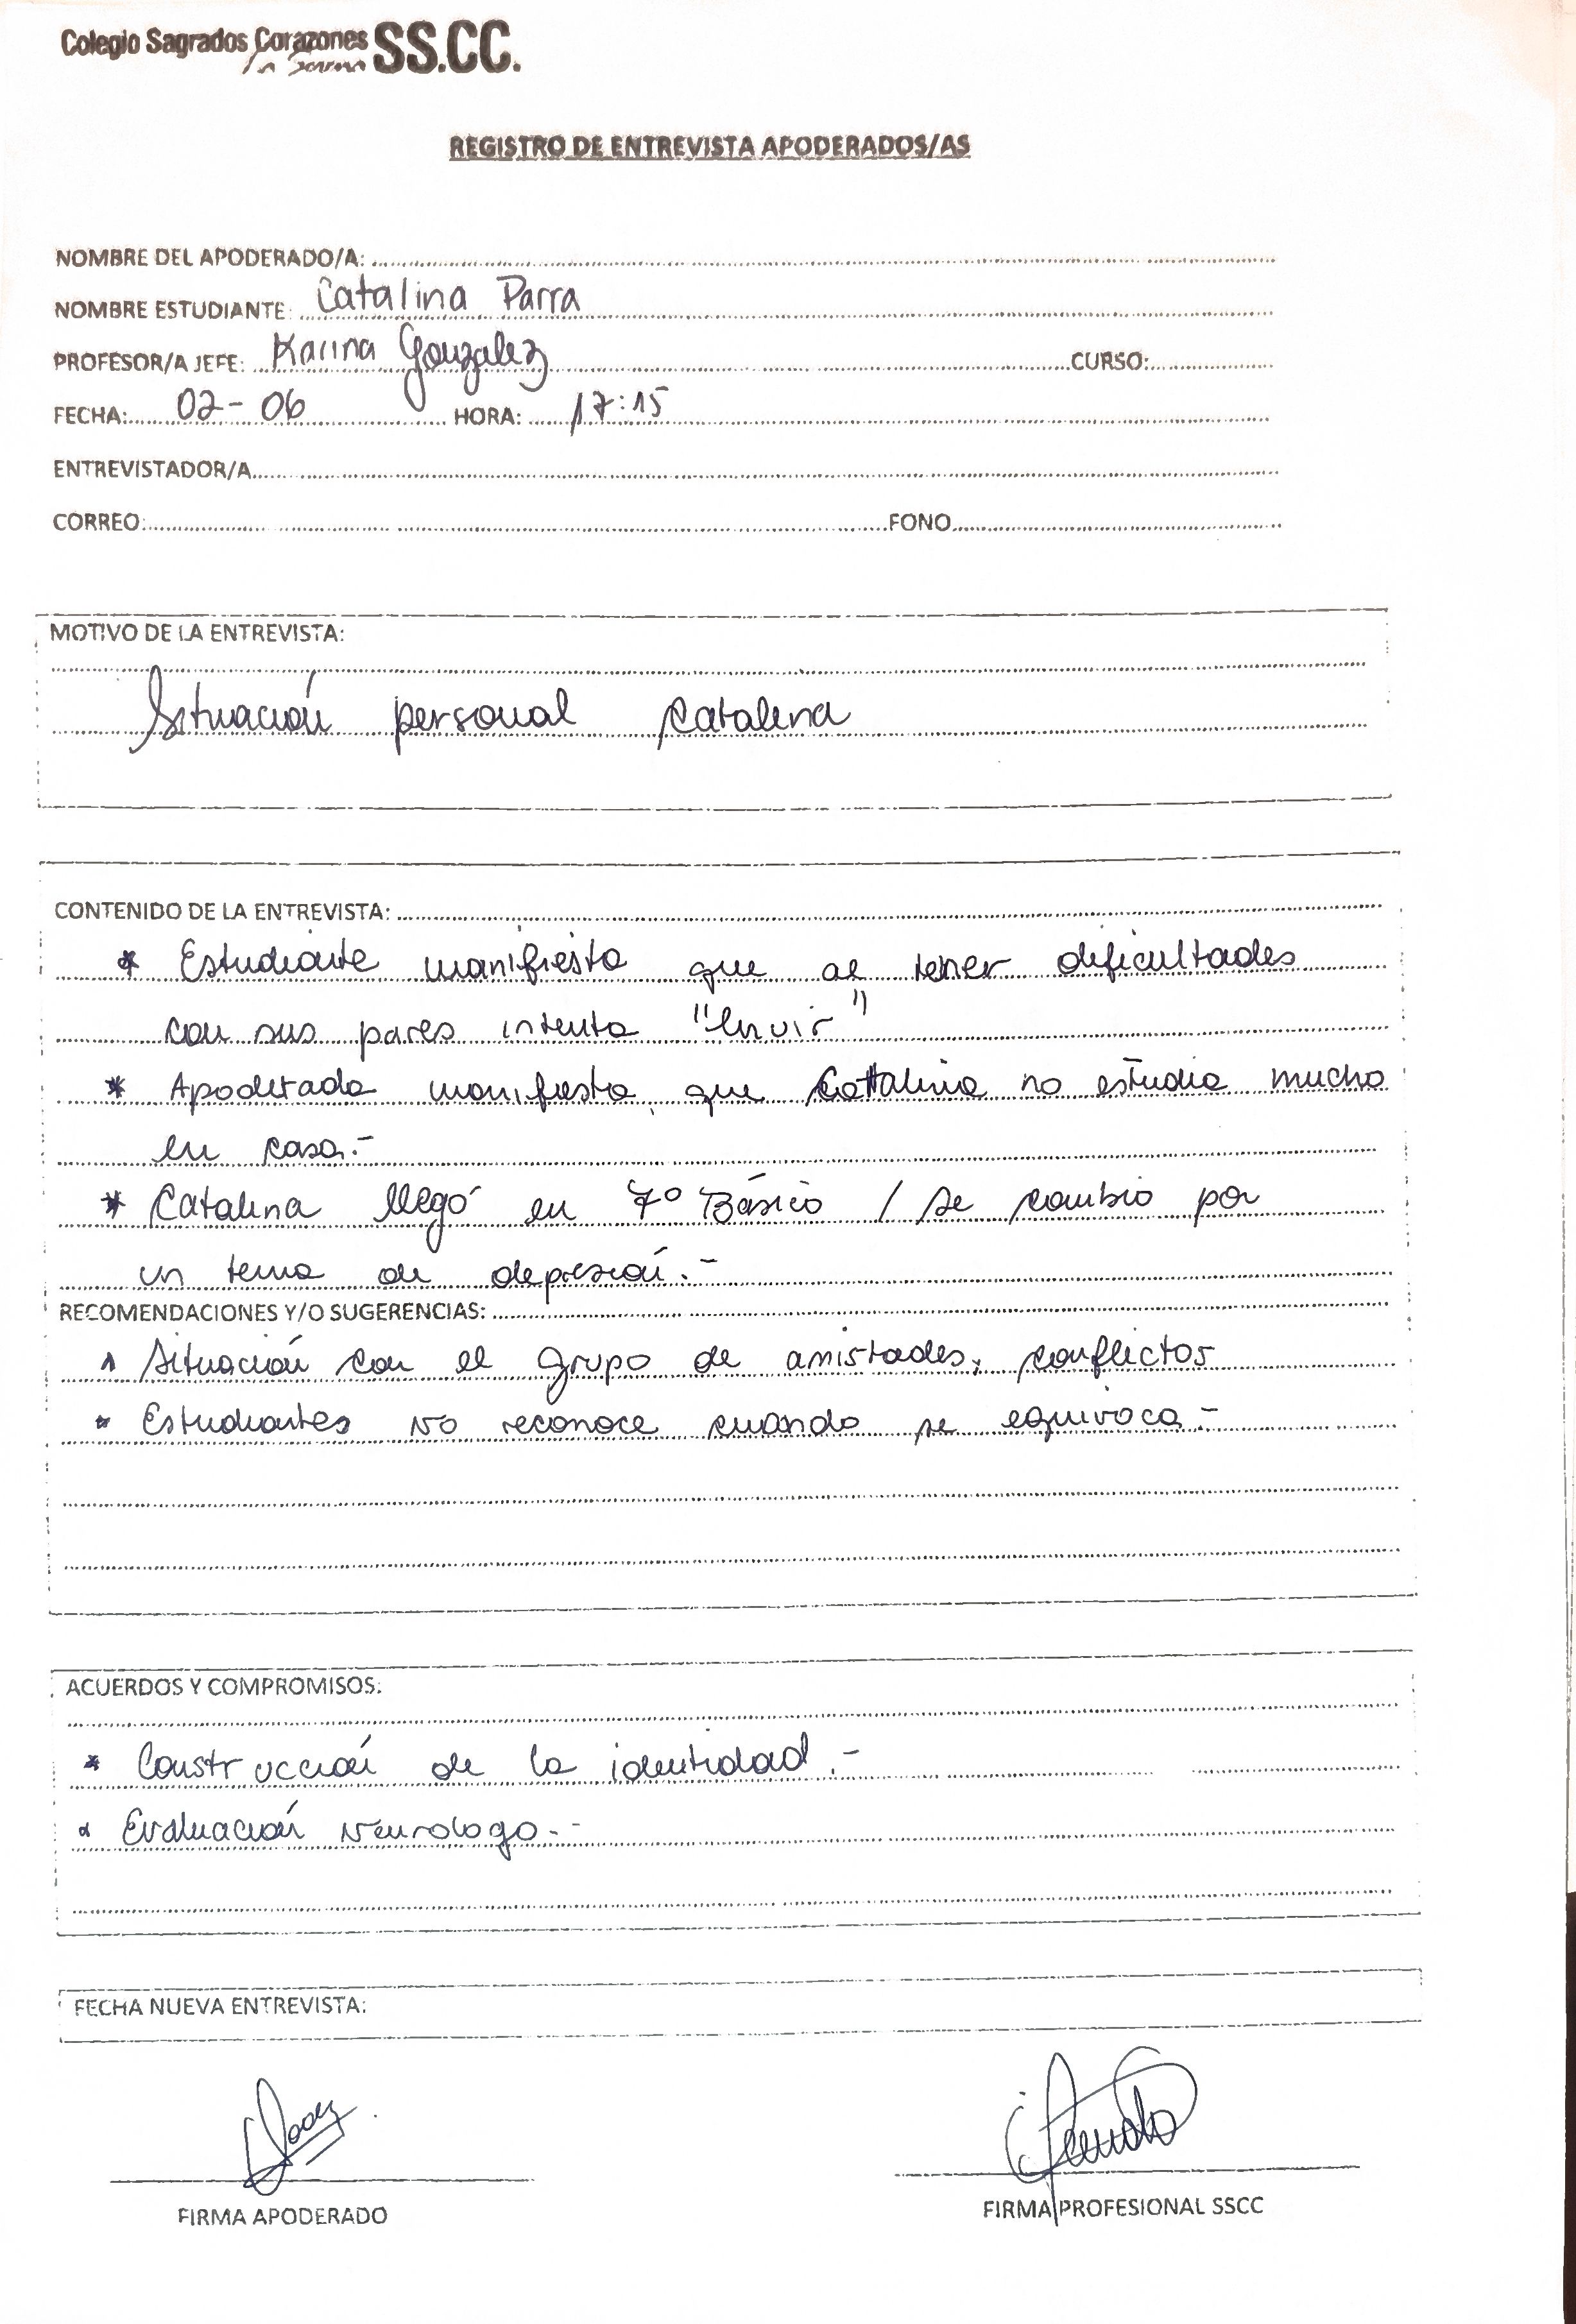 Colegio Sagrados Corazones SS.CC.
La Serena
REGISTRO DE ENTREVISTA APODERADOS/AS
NOMBRE DEL APODERADO/A:
NOMBRE ESTUDIANTE: Catalina Parra
PROFESOR/A JEFE: Karina Gonzalez CURSO:
FECHA: 02-06 HORA: 17:15
ENTREVISTADOR/A
CORREO: FONO
MOTIVO DE LA ENTREVISTA:
Situación personal Catalina
CONTENIDO DE LA ENTREVISTA:
* Estudiante manifiesta que al tener dificultades
con sus pares intenta "
* Apoderada manifiesta que Catalina no estudia mucho
en casa.-
* Catalina llegó en 7º Básico / se cambio por
un tema de depresión.-
RECOMENDACIONES Y/O SUGERENCIAS:
* Situación con el grupo de amistades, conflictos
* Estudiantes no reconoce cuando se equivoca.-
ACUERDOS Y COMPROMISOS:
* Construcción de la identidad.-
* Evaluación Neurologo.-
FECHA NUEVA ENTREVISTA:
FIRMA APODERADO
FIRMA PROFESIONAL SSCC